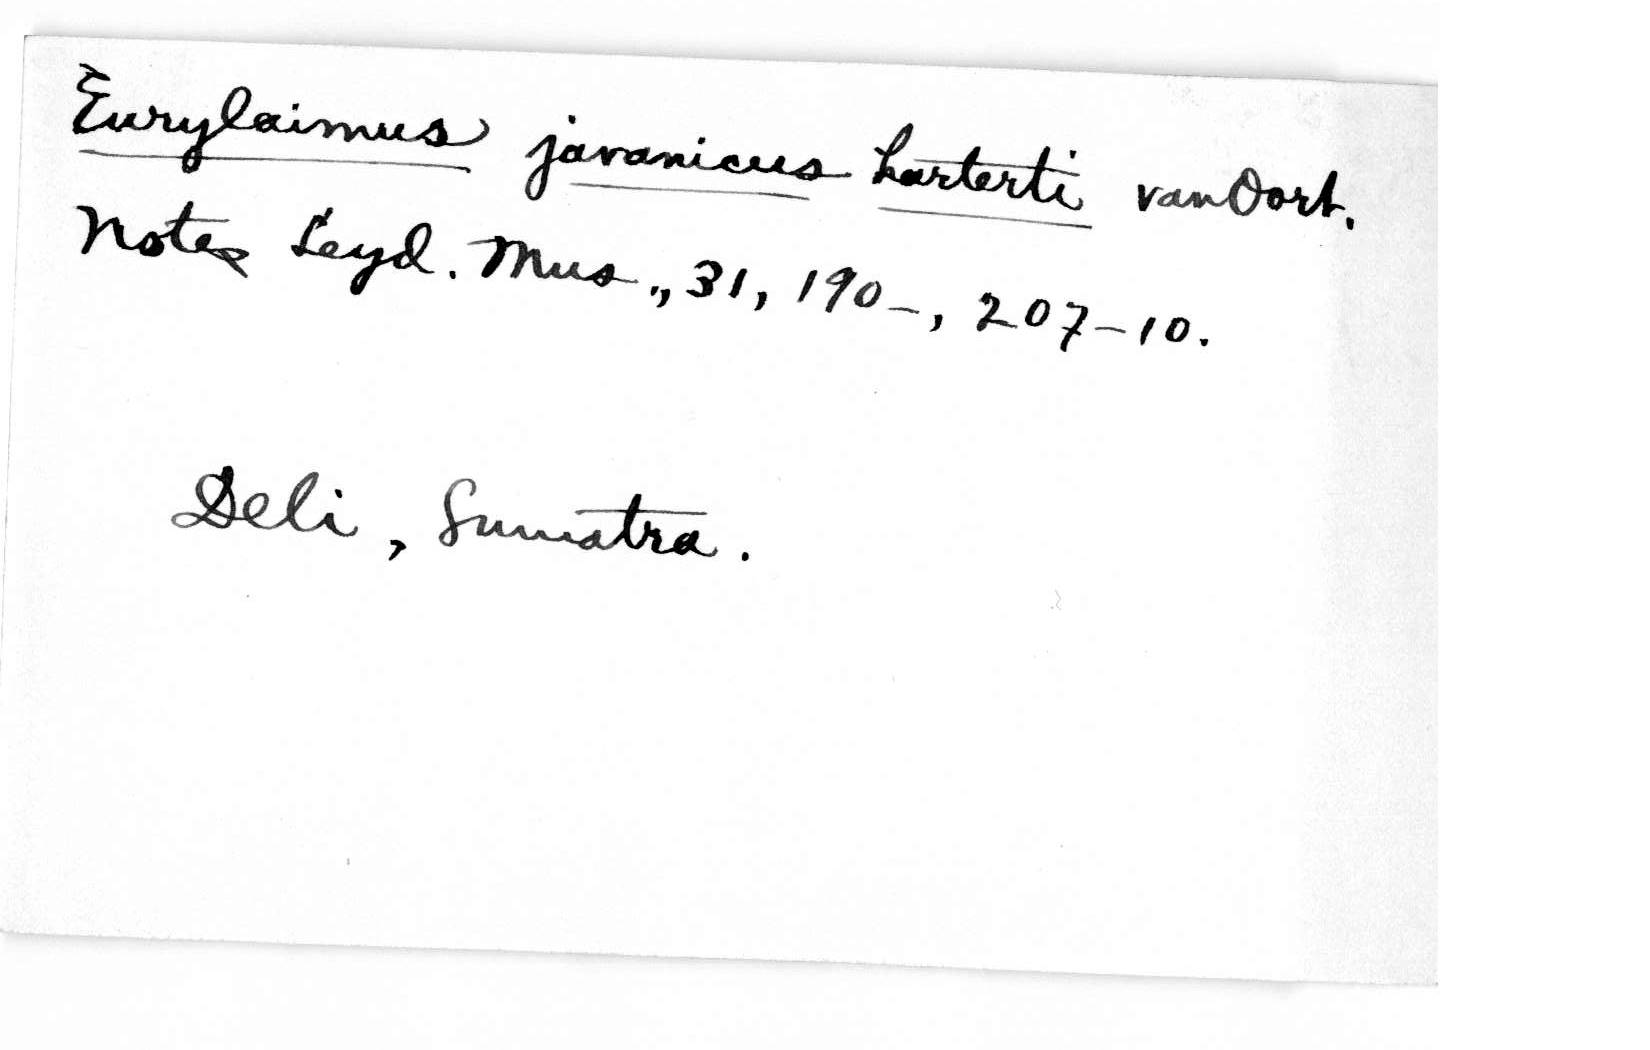 Eurylaimus javanicus harterti van Oort.
Notes Leyd. Mus., 31, 190-, 207-10.
Deli, Sumatra.